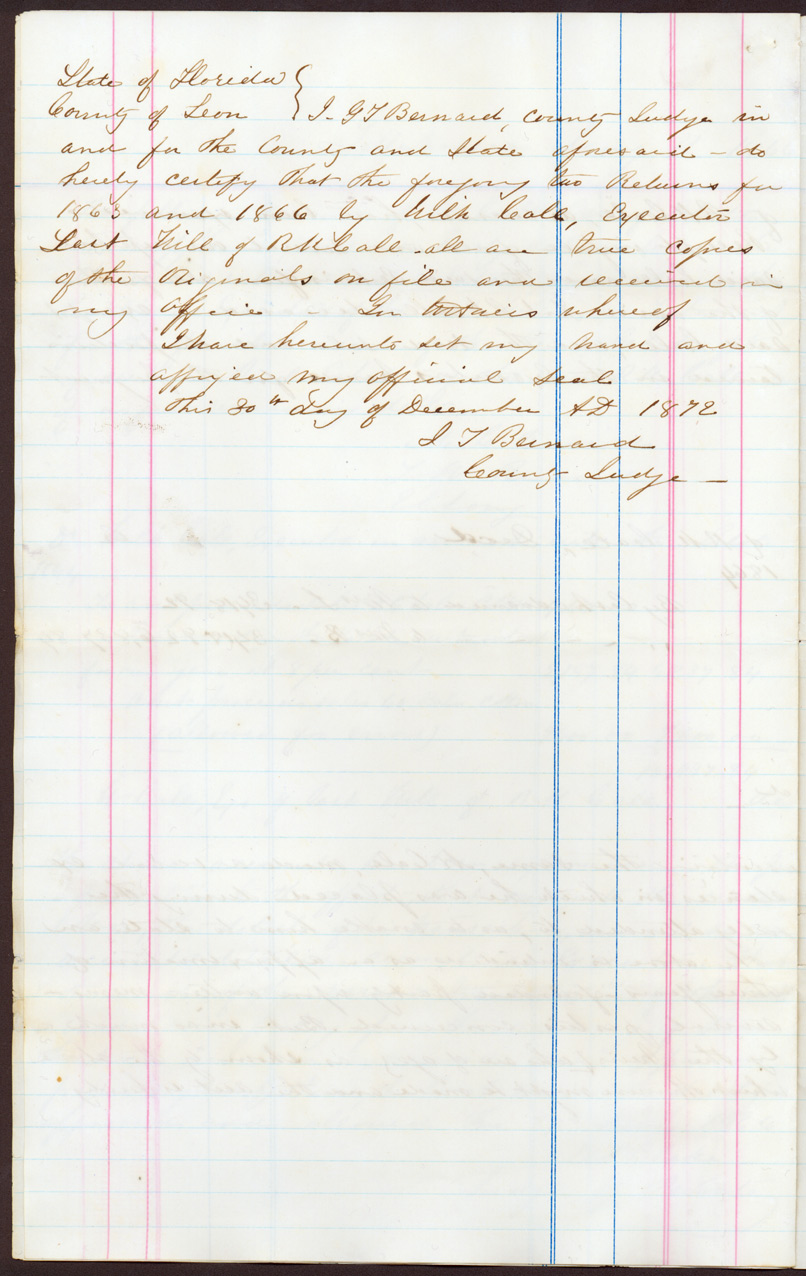 State of Florida }
County of Leon } I. G T Bernard, County Judge in
and for the County and State aforesaid - do
hereby certify that the foregoing two Returns for
1865 and 1866 by Wilk Call, Executor
Last Will of R K Call - all are true copies
of the Originals on file and received in
my office - In witness whereof
I have hereunto set my hand and
affixed my official Seal
this 30th day of December AD 1872
G T Bernard
County Judge -